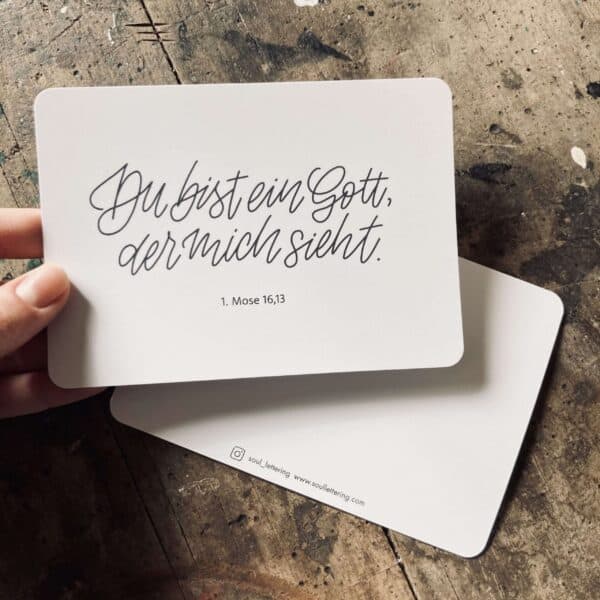 Du bist ein Gott,
der mich sieht.
1. Mose 16,13
soul_lettering www.soullettering.com